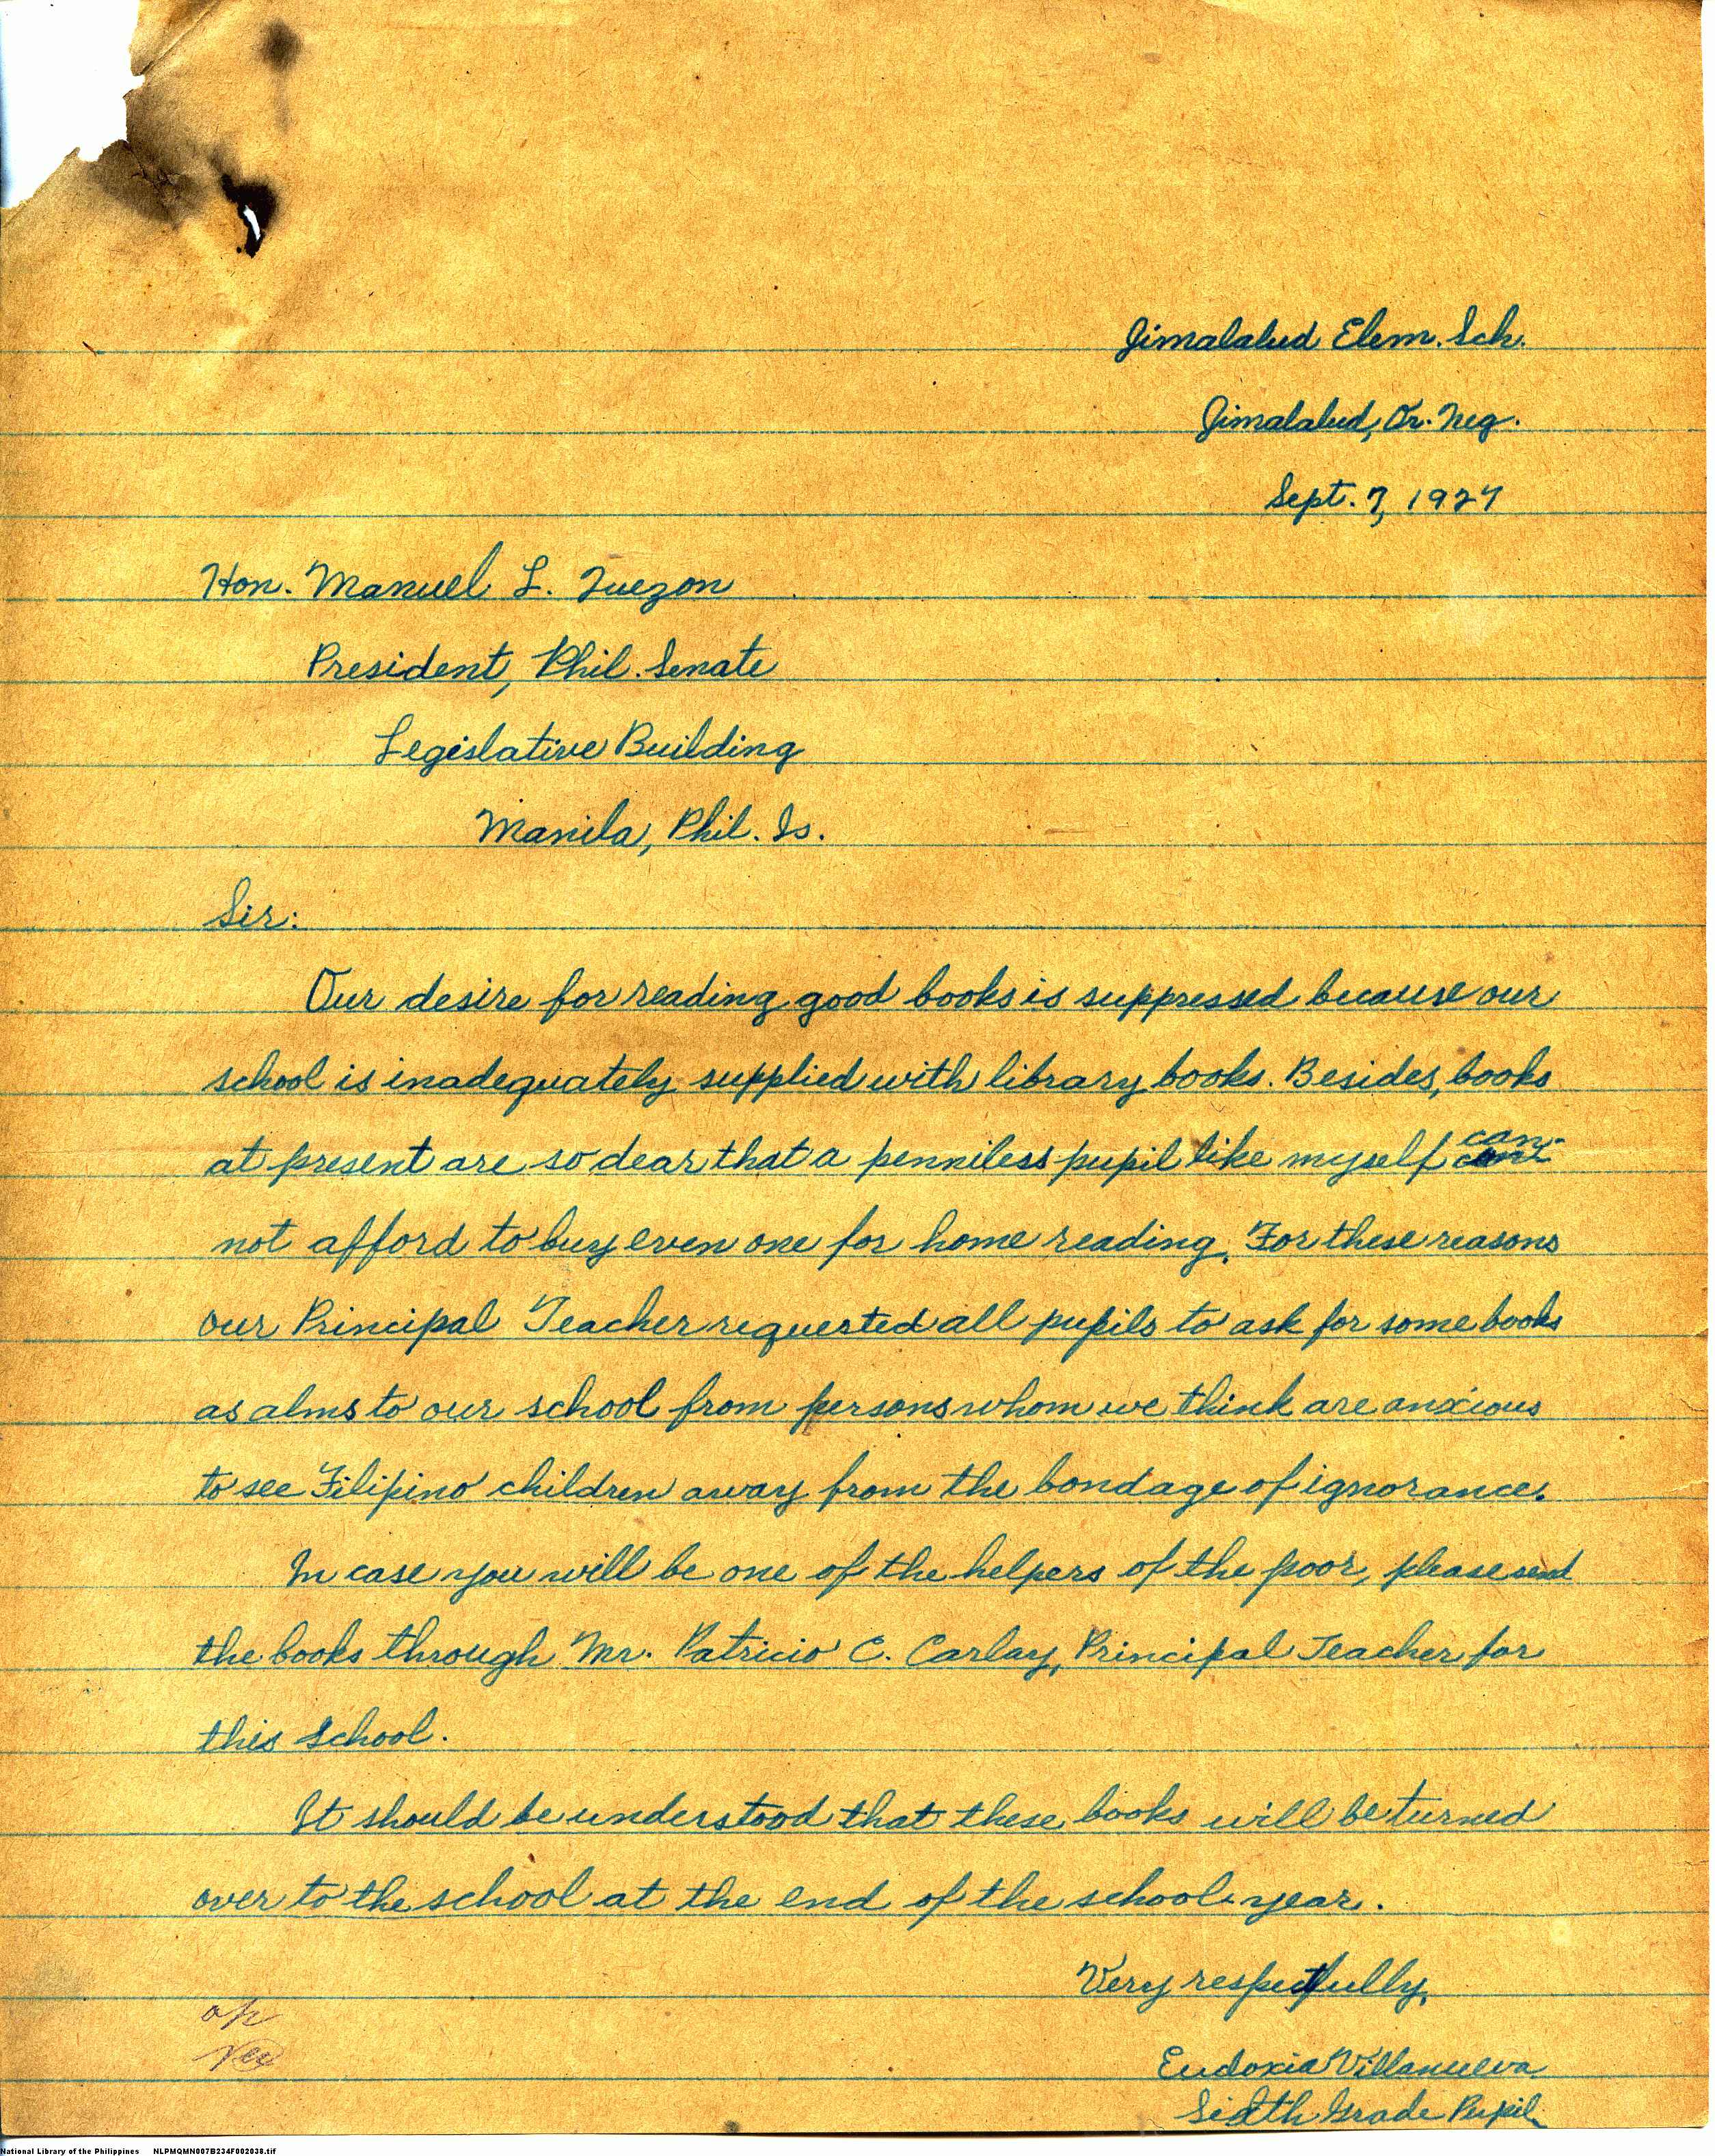 Jimalalud Elem. Sch.
Jimalalud, Or. Neg.
Sept. 7, 1927
Hon. Manuel L. Quezon
President, Phil. Senate
Legislative Building
Manila, Phil. Is.
Sir:
Our desire for reading good books is suppressed because our
school is inadequately supplied with library books. Besides, books
at present are so dear that a penniless pupil like myself can-
not afford to buy even one for home reading. For these reasons
our Principal Teacher requested all pupils to ask for some books
as alms to our school from persons whom we think are anxious
to see Filipino children away from the bondage of ignorance.
In case you will be one of the helpers of the poor, please send
the books through Mr. Patricio C. Carlay, Principal Teacher for
this school.
It should be understood that these books will be turned
over to the school at the end of the school-year.
Very respectfully,
Eudoxia Villanueva
Sixth Grade Pupil
National Library of the Philippines NLPMQMN007B234F002038.tif